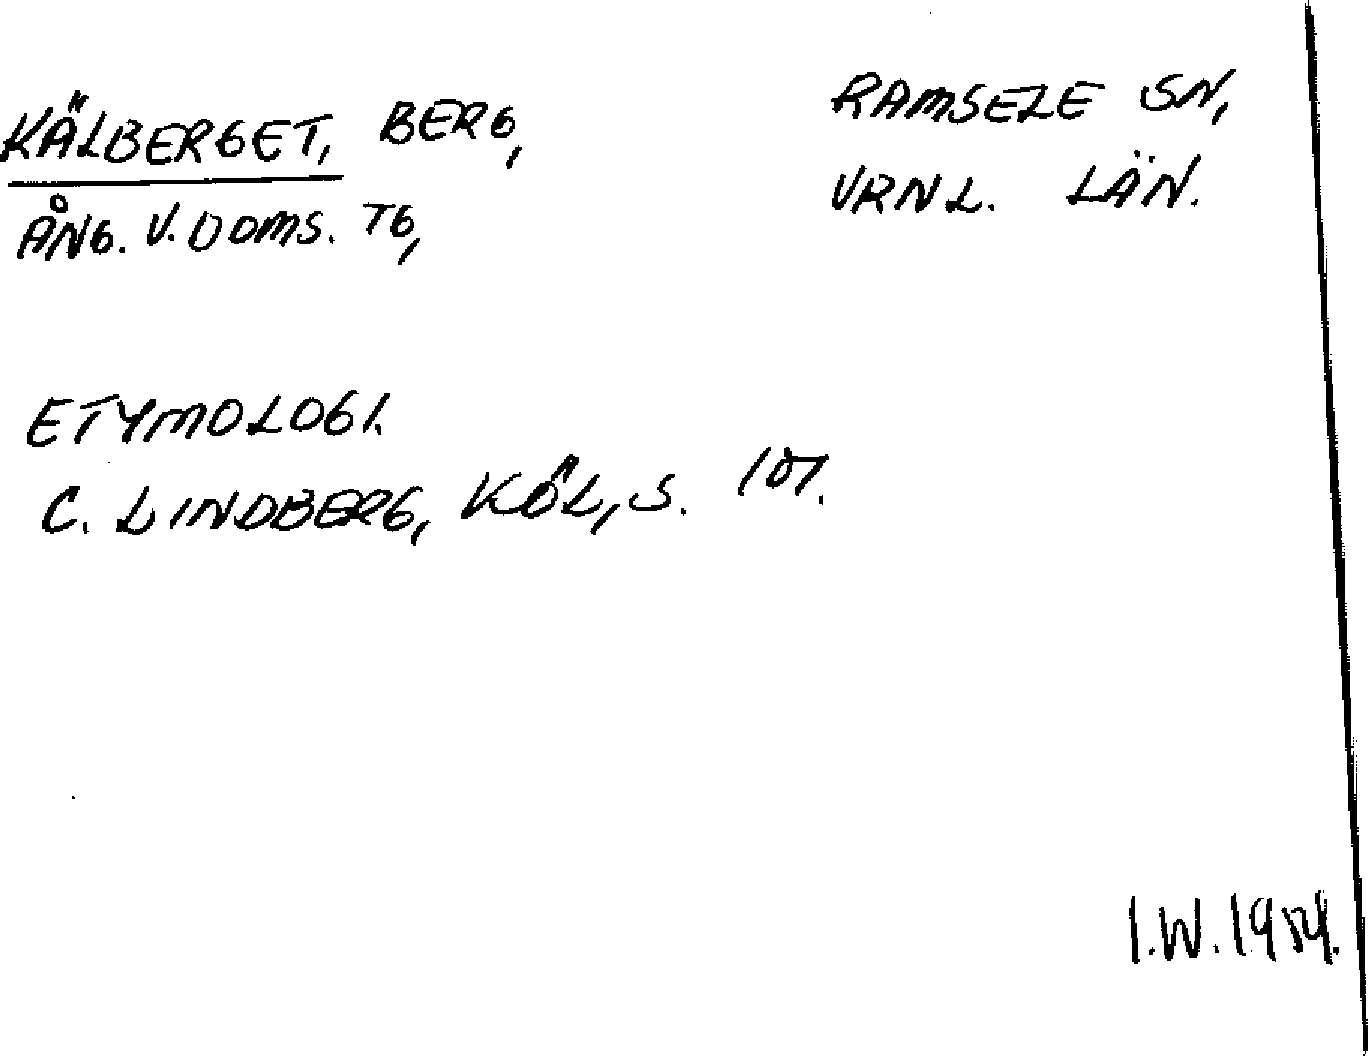 KÄLBERGET, BERG,
ÅNG. V. DOMS. TG,
RAMSELE SN,
VRNL. LÄN.
ETYMOLOGI.
C. LINDBERG, KÖL, S.
I.W.